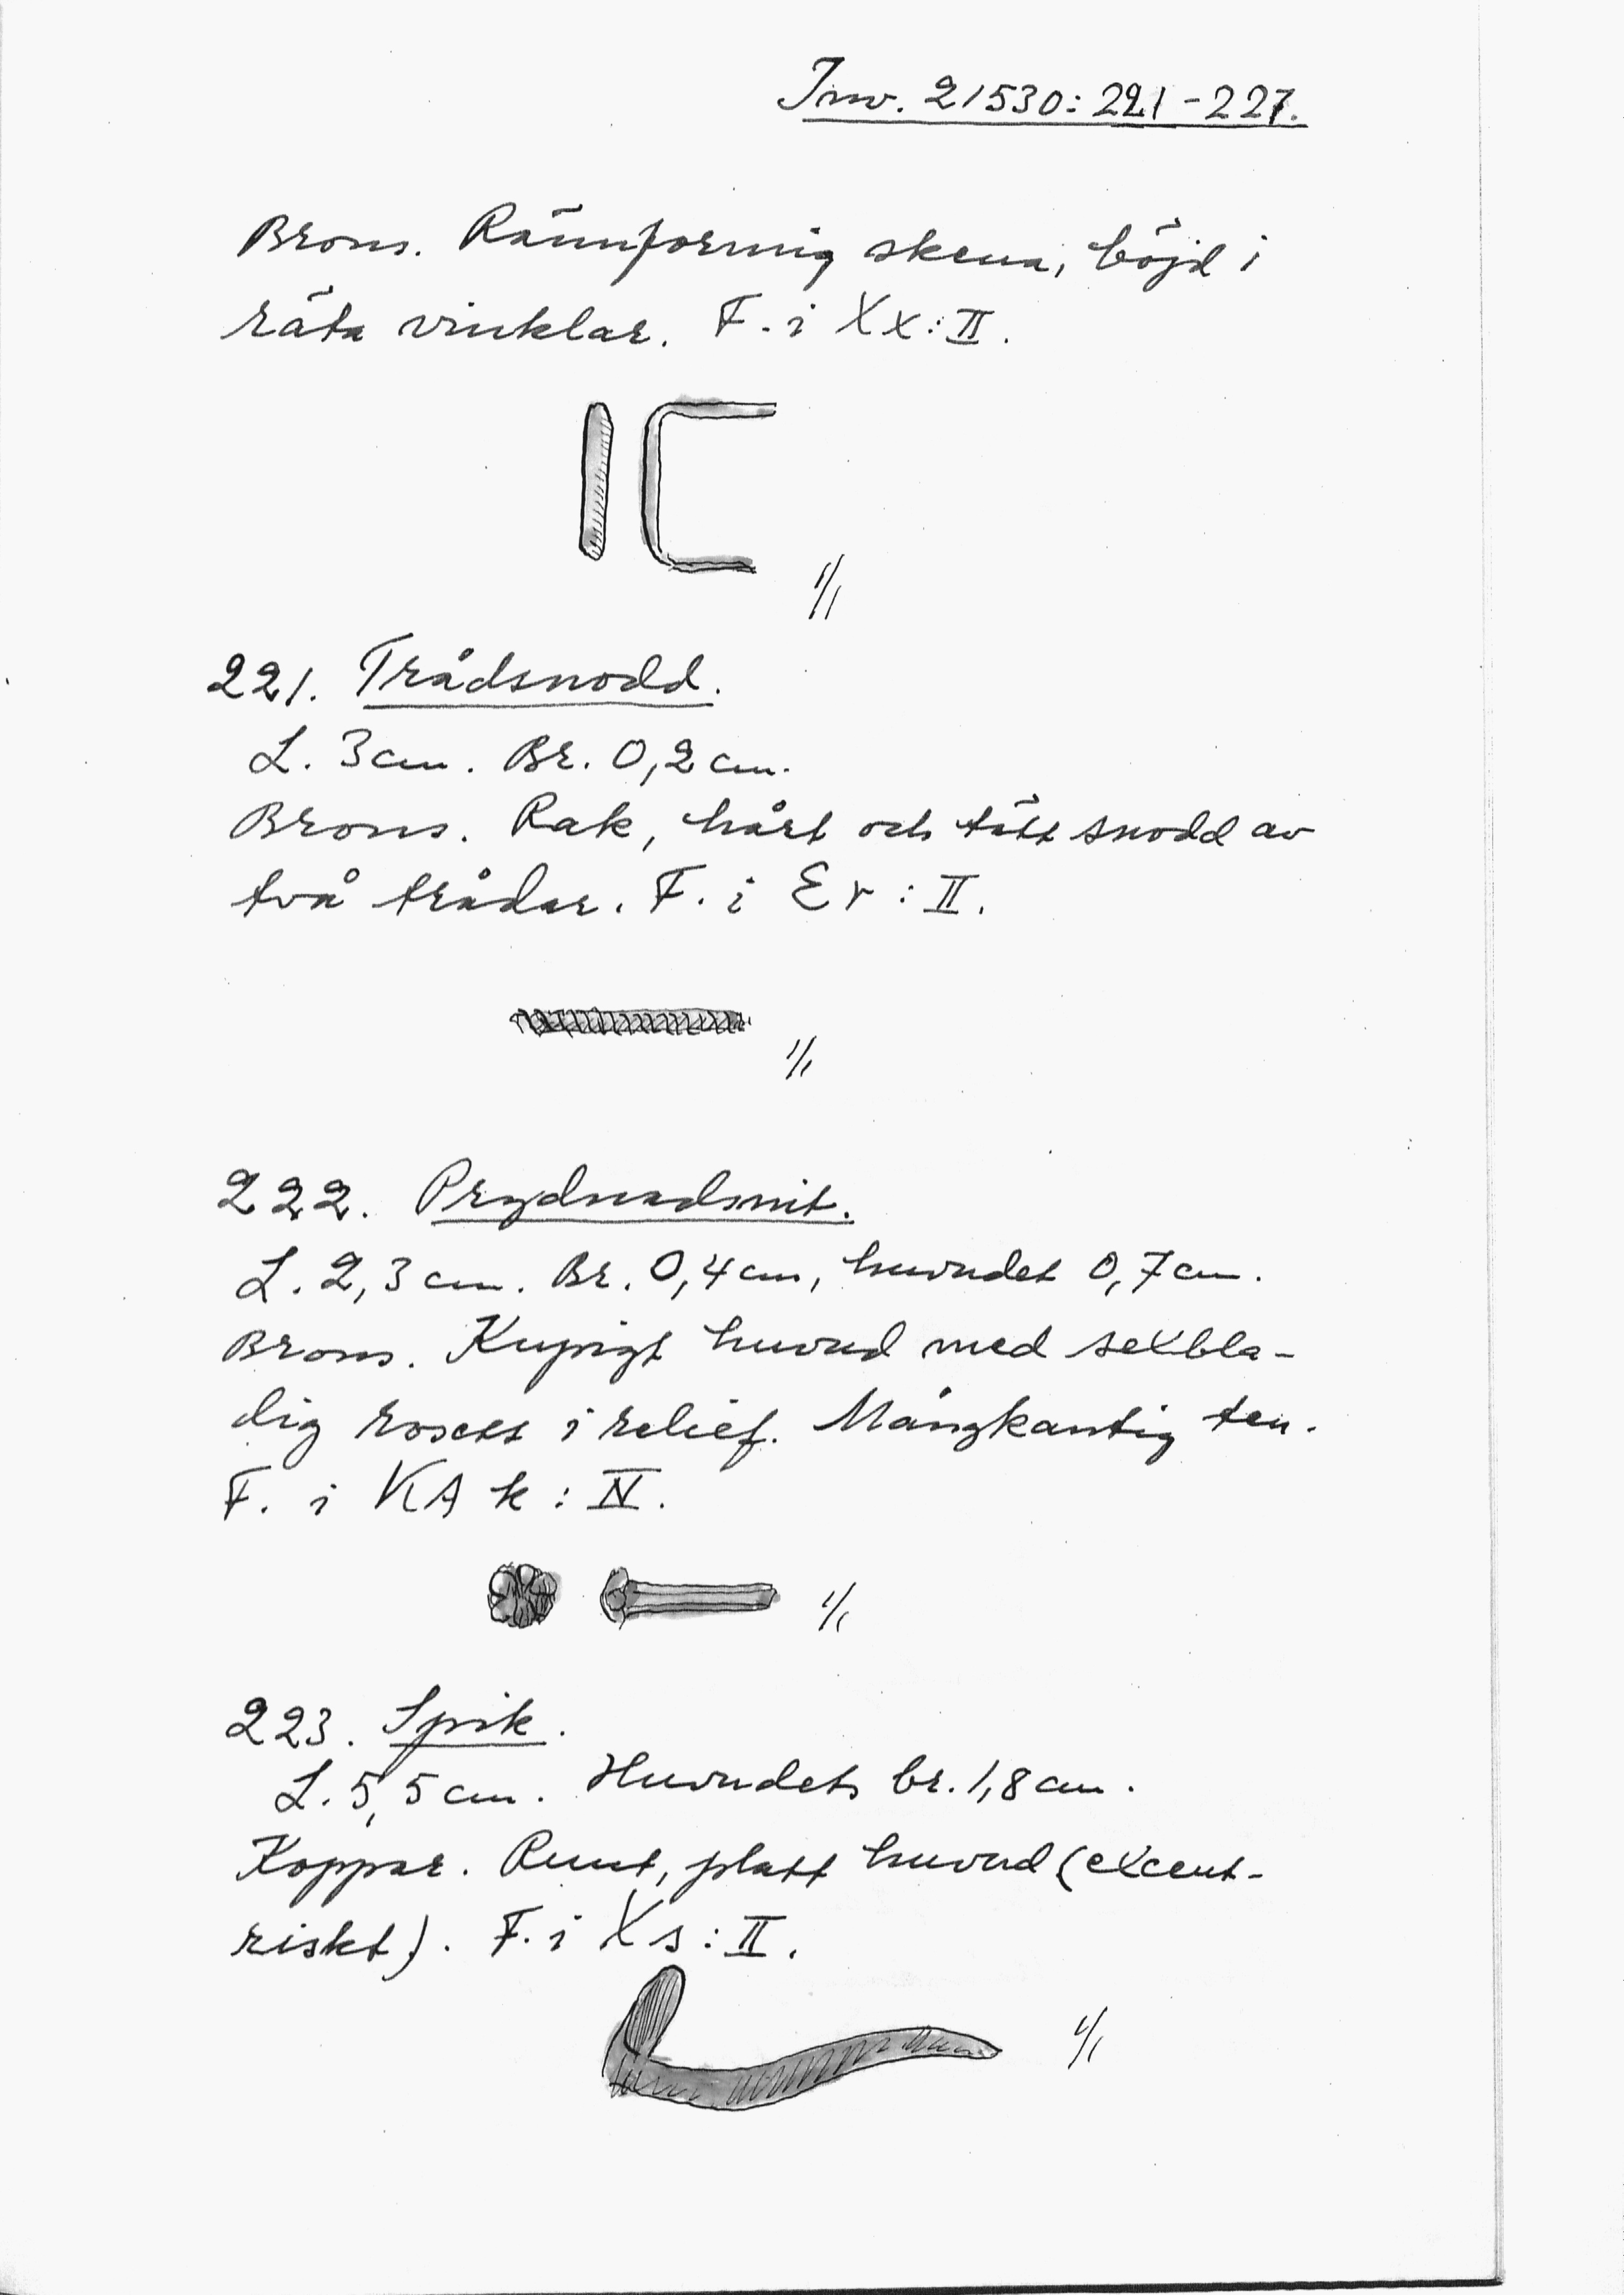 Inv. 21530:221-227.
Brons. Rännformig skena, böjd i
räta vinklar. F. i Xx:II.
1/1
221. Trådsnodd.
L. 3 cm. Br. 0,2 cm.
Brons. Rak, hårt och tätt snodd av
två trådar. F. i Er:II.
1/1
222. Prydnadsnit.
L. 2,3 cm. Br. 0,4 cm, huvudet 0,7 cm.
Brons. Kupigt huvud med sexbla-
dig rosett i relief. Mångkantig ten.
F. i KA k:IV.
1/1
223. Spik.
L. 5,5 cm. Huvudets br. 1,8 cm.
Koppar. Runt, platt huvud (excent-
riskt). F. i Xs:II.
1/1